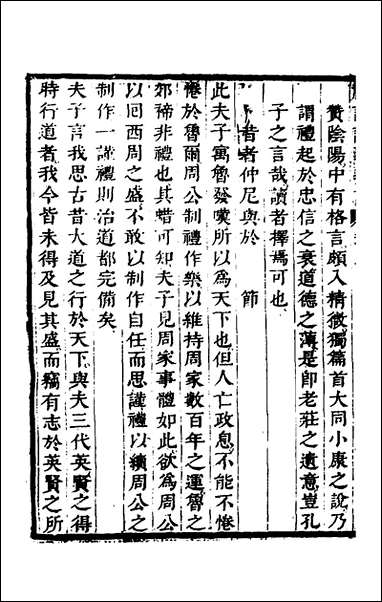 贊陰陽中有格言頗入精微獨篇首大同小康之說乃
謂禮起於忠信之衰道德之薄是卽老莊之遺意豈孔
子之言哉讀者擇焉可也
昔者仲尼與於 節
此夫子寓魯發嘆所以為天下也但人亡政息不能不惓
惓於魯爾周公制禮作樂以維持周家數百年之運魯之
郊禘非禮也其
可知夫子見周家事體如此欲為周公
以囘西周之盛不敢以制作自任而思謹禮以續周公之
制作一謹禮則治道都完備矣
夫子言我思古昔大道之行於天下與夫三代英賢之得
時行道者我今皆未得及見其盛而竊有志於英賢之所